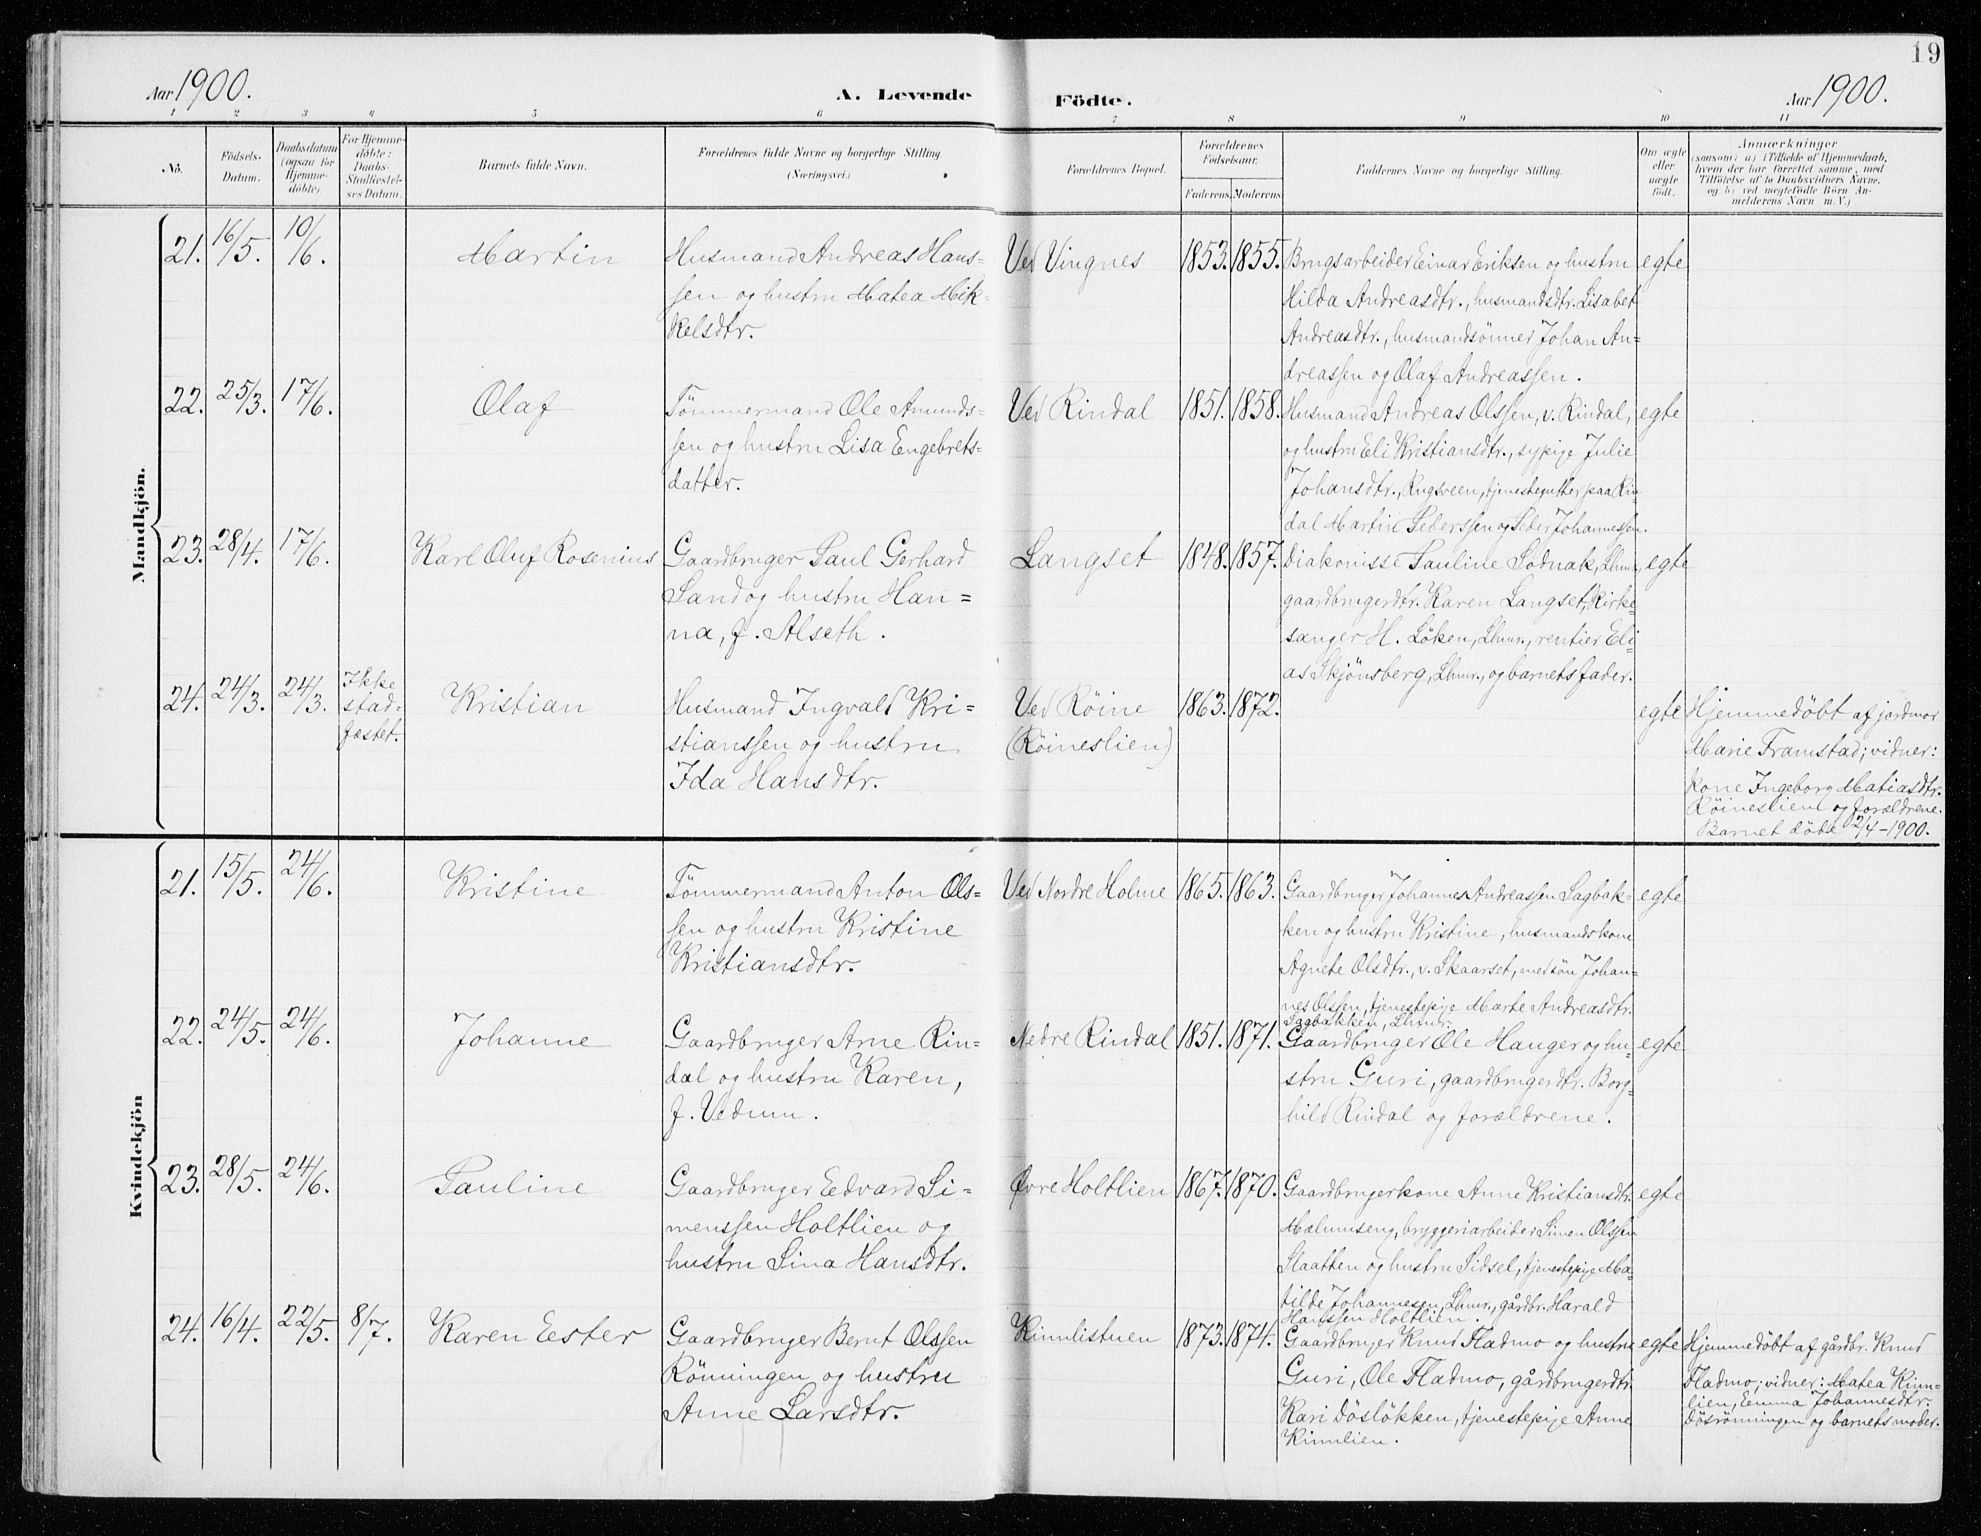 19
Aar 1900.
A. Levende
Födte.
Aar 1900.
1 2 3 4 5 6 7 8 9 10 11
No.
Födsels-
Datum.
Daabsdatum
(ogsaa for
Hjemme-
döbte).
For Hjemme-
döbte:
Daabs-
Stadfæstel-
ses Datum.
Barnets fulde Navn.
Forældrenes fulde Navne og borgerlige Stilling
(Næringsvei.)
Forældrenes Bopæl.
Forældrenes
Födselsaar.
Faderens Moderens
Faddernes Navne og borgerlige Stilling.
Om ægte
eller
uægte
födt.
Anmærkninger
(saasom: a) i Tilfælde af Hjemmedaab,
hvem der har forrettet samme, med
Tilföielse af to Daabsvidners Navne,
og b) ved uegtefödte Börn An-
melderens Navn m. V.)
Mandkjön.
21. 16/5. 10/6. Martin
Husmand Andreas Hans-
sen og hustru Matea Mik-
kelsdtr.
Ved Vingnes 1853. 1855.
Brugsarbeider Einar Eriksen og hustru
Hilda Andreasdtr., husmandsdtr. Lisabet
Andreasdtr., husmandsönner Johan An=
dreassen og Olaf Andreassen.
egte
22. 25/3. 17/6. Olaf
Tömmermand Ole Amunds=
sen og hustru Lisa Engebrets=
datter.
Ved Rindal 1851. 1858.
Husmand Andreas Olssen, v. Rindal,
og hustru Eli Kristiansdtr., sypige Julie
Johansdtr., Rugsveen, tjenestegutter paa Rin
dal Martin Pederssen og Peder Johannessen.
egte
23. 28/4. 17/6. Karl Oluf Rosenius
Gaardbruger Paul Gerhard
Sand og hustru Han=
na, f. Alseth.
Langset 1848. 1857.
Diakonisse Pauline Sodnak, Lhmr.,
gaardbrugerdtr. Karen Langset, kirke=
sanger H. Löken, Lhmr., rentier Eli=
as Skjönsberg, Lhmr., og barnets fader.
egte
24. 24/3. 24/3. Ikke
stad-
fæstet.
Kristian
Husmand Ingvald Kri=
stianssen og hustru
Ida Hansdtr.
Ved Röine
(Röineslien)
1863. 1872.
egte
Hjemmedöbt af jordmor
Marie Framstad; vidner:
kone Ingeborg Matiasdtr.
Röineslien og forældrene.
Barnet döde 2/4-1900.
Kvindekjön
21. 15/5. 24/6. Kristine
Tömmermand Anton Ols=
sen og hustru Kristine
Kristiansdtr.
Ved Nordre Holme 1865. 1863.
Gaardbruger Johannes Andreassen Sagbak=
ken og hustru Kristine, husmandskone
Agnete Olsdtr., v. Skaarset, med sön Johan=
nes Olssen, tjenestepige Marte Andreasdtr.
Sagbakken, Lhmr.
egte
22. 24/5. 24/6. Johanne
Gaardbruger Arne Rin=
dal og hustru Karen,
f. Vedum.
Nedre Rindal 1851. 1871.
Gaardbruger Ole Hauger og hu=
stru Guri, gaardbrugerdtr. Borg=
hild Rindal og forældrene.
egte
23. 28/5. 24/6. Pauline
Gaardbruger Edvard Si=
menssen Holtlien og
hustru Sina Hansdtr.
Øvre Holtlien 1867. 1870.
Gaardbrugerkone Anne Kristiansdtr.
Malumseng, bryggeriarbeider Simen Olssen
Slaatten og hustru Sidsel, tjenestepige Ma=
tilde Johannesen, Lhmr., gårdbr. Harald
Hanssen Holtlien.
egte
24. 16/4. 22/5. 8/7. Karen Eester
Gaardbruger Bernt Olssen
Rönningen og hustru
Anne Larsdtr.
Kinnlistuen 1873. 1874.
Gaardbruger Knud Fladmo og hustru
Guri, Ole Fladmo, gårdbrugerdtr.
Kari Döslökken, tjenestepige Anne
Kinnlien.
egte
Hjemmedöbt af gårdbr. Knud
Fladmo; vidner: Matea Kinn=
lien, Emma Johannesdtr.
Dösrönningen og barnets moder.